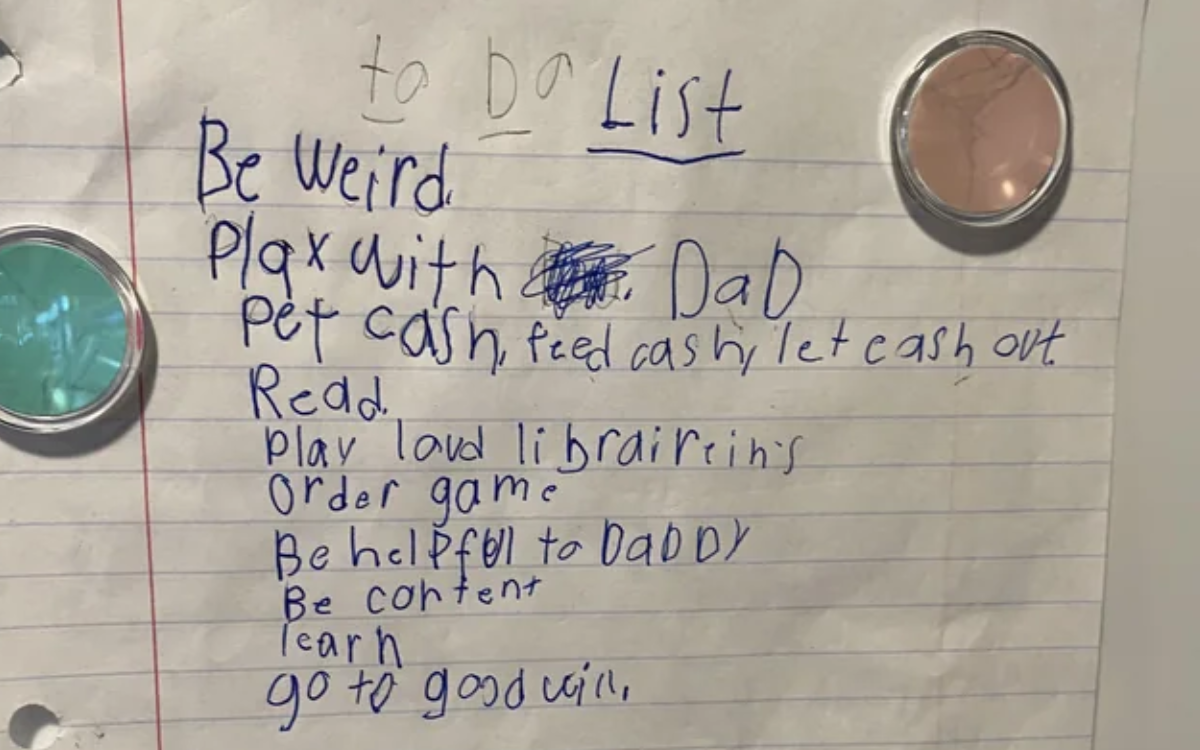 to Do List
Be weird.
Play with DaD
Pet cash, feed cash, let cash out.
Read.
Play loud librairein's
order game
Be helpfull to DaDDY
Be content
learn
go to good will.